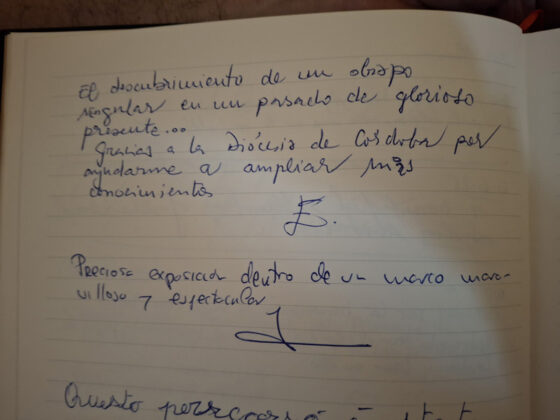 El descubrimiento de un obispo
singular en un pasado de glorioso
presente...
Gracias a la Diócesis de Cordoba por
ayudarme a ampliar mis
conocimientos
Preciosa exposicion dentro de un marco mara-
villoso y espectacular
Questo percorso è